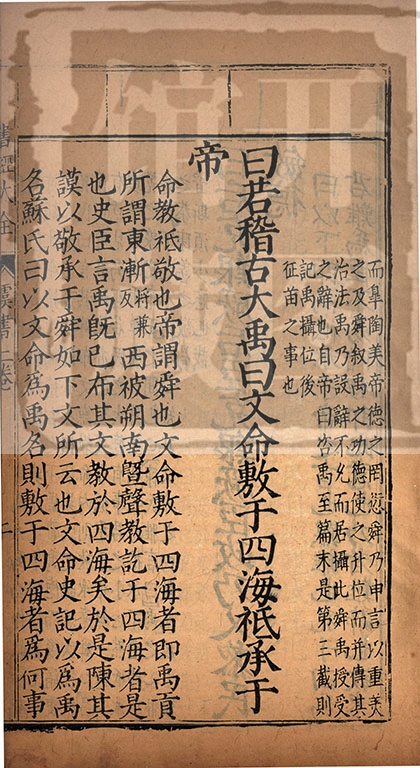 而皐陶美帝德之罔愆舜乃申言以重美
之及舜叙禹之功德使之升位而并傳其
治法禹乃設辭不允而居攝此舜禹授受
之辭也自帝曰咨禹至篇末是第三截則
記禹攝位後
征苗之事也
曰若稽古大禹曰文命敷于四海祗承于
帝
命教祗敬也帝謂舜也文命敷于四海者即禹貢
所謂東漸將兼反西被朔南曁聲教訖于四海者是
也史臣言禹旣已布其文教於四海矣於是陳其
謨以敬承于舜如下文所云也文命史記以爲禹
名蘇氏曰以文命爲禹名則敷于四海者爲何事
書經大全 虞書二卷